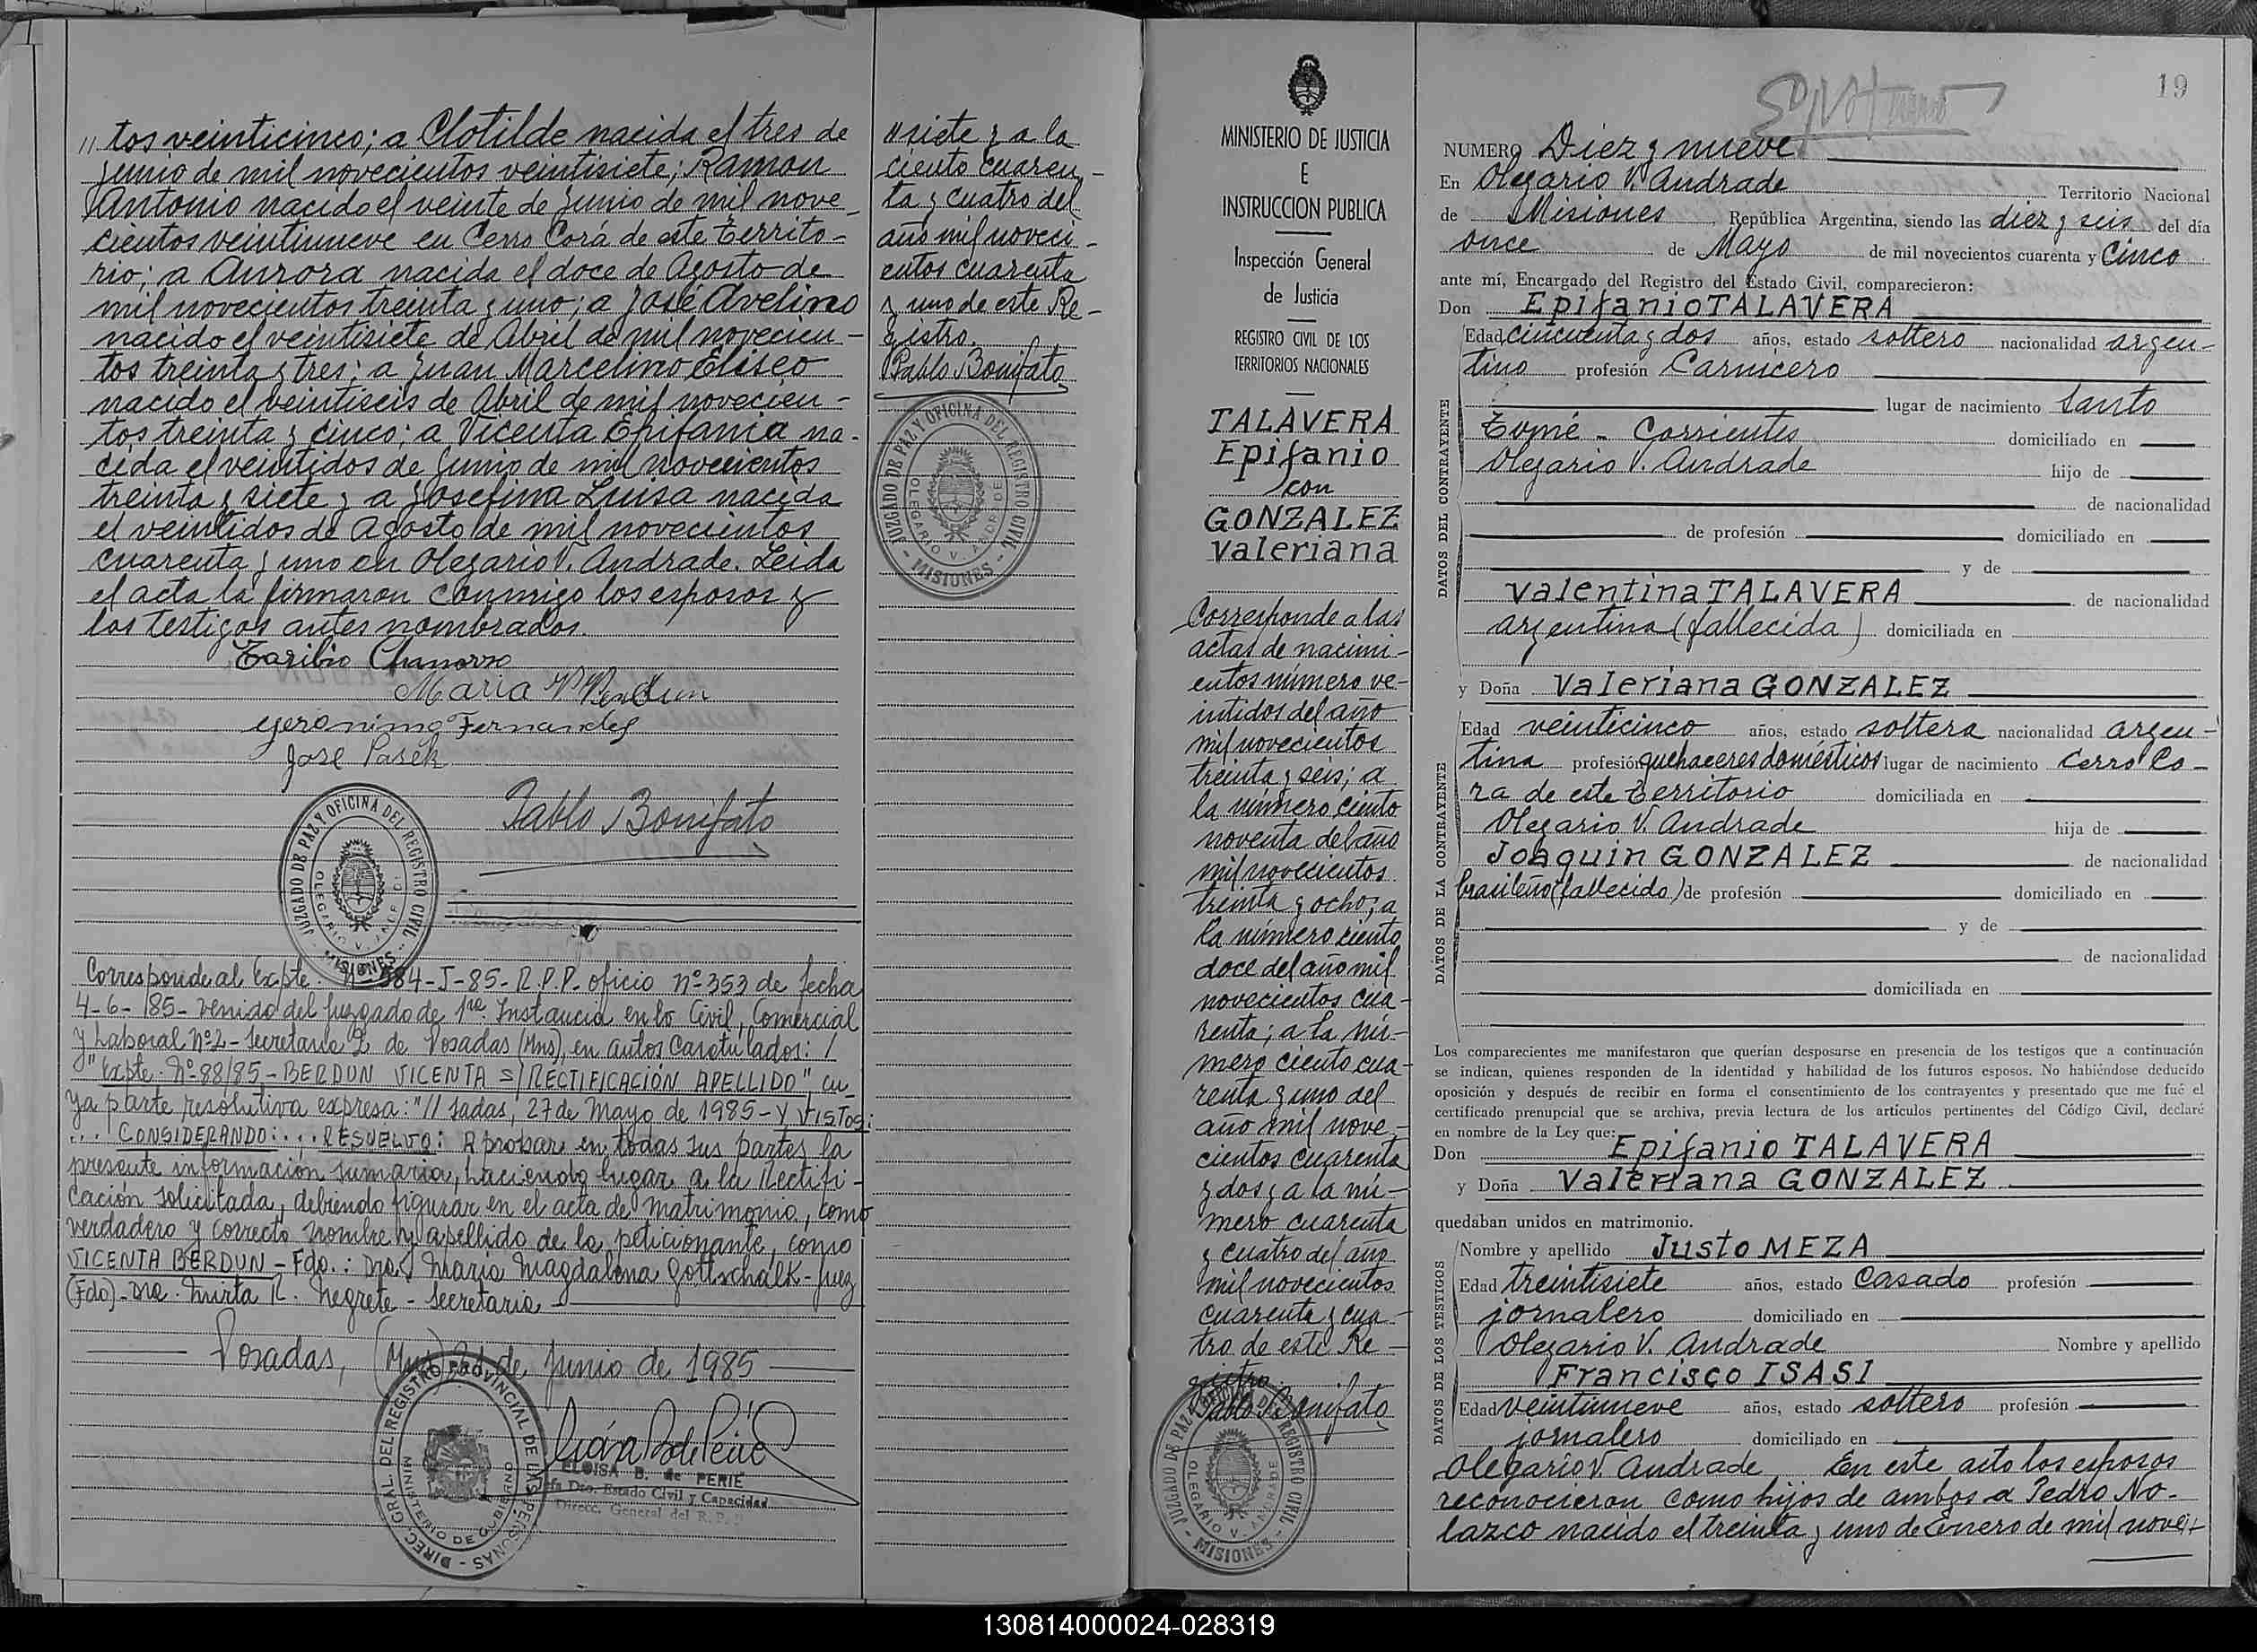 „ tos veinticinco; a Clotilde nacida el tres de
junio de mil novecientos veintisiete; Ramon
Antonio nacido el veinte de Junio de mil nove-
cientos veintinueve en Cerro Corá de este territo-
rio; a Aurora nacida el doce de Agosto de
mil novecientos treinta y uno; a José Avelino
nacido el veintisiete de Abril de mil novecien-
tos treinta y tres; a Juan Marcelino Eliseo
nacido el veintiseis de Abril de mil novecien-
tos treinta y cinco; a Vicenta Epifania na-
cida el veintidos de Junio de mil novecientos
treinta y siete y a Josefina Luisa nacida
el veintidos de Agosto de mil novecientos
cuarenta y uno en Olegario V. Andrade. Leida
el acta la firmaron conmigo los esposos y
los testigos antes nombrados.
Toribio Chamorro
Maria V Verdun
Geronimo Fernandes
Jose Pasek
Pablo Bonifato
JUZGADO DE PAZ Y OFICINA DEL REGISTRO CIVIL
OLEGARIO V. ANDRADE
- MISIONES -
Corresponde al Expte. Nº 584-J-85-R.P.P. oficio nº 353 de fecha
4-6-85- venido del Juzgado de 1ra Instancia en lo Civil, Comercial
y Laboral Nº 2 - Secretaria 2 de Posadas (Mns), en autos caratulados: /
" Expte. Nº 88/85 - BERDUN VICENTA S/ RECTIFICACIÓN APELLIDO" cu
ya parte resolutiva expresa: "// sadas, 27 de Mayo de 1985 - Y VISTOS:
... CONSIDERANDO: ... RESUELVO: Aprobar en todas sus partes la
presente información sumaria, haciendo lugar a la Rectifi-
cación solicitada, debiendo figurar en el acta de matrimonio, como
verdadero y correcto nombre y apellido de la peticionante, como
VICENTA BERDUN - Fdo.: Dra. Maria Magdalena Gottschalk - Juez
(Fdo) - Dra. Mirta R. Negrete - Secretaria
Posadas, (Mns) 21 de Junio de 1985
DIREC. GRAL. DEL REGISTRO PROVINCIAL DE LAS PERSONAS
MINISTERIO DE GOBIERNO
ELOISA B. de PERIE
Jefa Dto. Estado Civil y Capacidad
Direcc. General del R. P. P.
„ siete y a la
ciento cuaren-
ta y cuatro del
año mil noveci-
entos cuarenta
y uno de este Re-
gistro.
Pablo Bonifato
JUZGADO DE PAZ Y OFICINA DEL REGISTRO CIVIL
OLEGARIO V. ANDRADE
- MISIONES -
MINISTERIO DE JUSTICIA
E
INSTRUCCION PUBLICA
Inspección General
de Justicia
REGISTRO CIVIL DE LOS
TERRITORIOS NACIONALES
TALAVERA
Epifanio
con
GONZALEZ
Valeriana
Corresponde a las
actas de nacimi-
entos número ve-
intidos del año
mil novecientos
treinta y seis; a
la número ciento
noventa del año
mil novecientos
treinta y ocho; a
la número ciento
doce del año mil
novecientos cua-
renta; a la nú-
mero ciento cua-
renta y uno del
año mil nove-
cientos cuarenta
y dos y a la nú-
mero cuarenta
y cuatro del año
mil novecientos
cuarenta y cua-
tro de este Re-
gistro.
Pablo Bonifato
JUZGADO DE PAZ Y OFICINA DEL REGISTRO CIVIL
OLEGARIO V. ANDRADE
- MISIONES -
19
NUMERO Diez y nueve
En Olegario V. Andrade Territorio Nacional
de Misiones, República Argentina, siendo las diez y seis del día
once de Mayo de mil novecientos cuarenta y Cinco
ante mí, Encargado del Registro del Estado Civil, comparecieron:
Don Epifanio TALAVERA
DATOS DEL CONTRAYENTE
Edad cincuenta y dos años, estado soltero nacionalidad argen-
tino profesión Carnicero
lugar de nacimiento Santo
Tomé - Corrientes domiciliado en
Olegario V. Andrade hijo de
de nacionalidad
de profesión domiciliado en
y de
Valentina TALAVERA de nacionalidad
argentina (fallecida) domiciliada en
y Doña Valeriana GONZALEZ
DATOS DE LA CONTRAYENTE
Edad veinticinco años, estado soltera nacionalidad argen-
tina profesión quehaceres domésticos lugar de nacimiento Cerro Co-
ra de este territorio domiciliada en
Olegario V. Andrade hija de
Joaquin GONZALEZ de nacionalidad
brasileño (fallecido) de profesión domiciliado en
y de
de nacionalidad
domiciliada en
Los comparecientes me manifestaron que querían desposarse en presencia de los testigos que a continuación
se indican, quienes responden de la identidad y habilidad de los futuros esposos. No habiéndose deducido
oposición y después de recibir en forma el consentimiento de los contrayentes y presentado que me fué el
certificado prenupcial que se archiva, previa lectura de los artículos pertinentes del Código Civil, declaré
en nombre de la Ley que:
Don Epifanio TALAVERA
y Doña Valeriana GONZALEZ
quedaban unidos en matrimonio.
DATOS DE LOS TESTIGOS
Nombre y apellido Justo MEZA
Edad treintisiete años, estado Casado profesión
jornalero domiciliado en
Olegario V. Andrade Nombre y apellido
Francisco ISASI
Edad veintinueve años, estado soltero profesión
jornalero domiciliado en
Olegario V. Andrade En este acto los esposos
reconocieron como hijos de ambos a Pedro No-
lazco nacido el treinta y uno de Enero de mil nove-
130814000024-028319